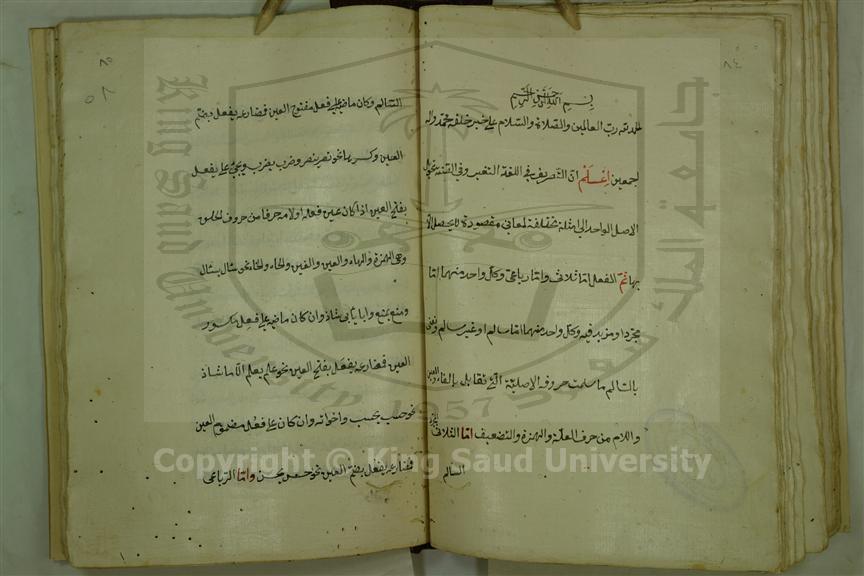 بسم الله الرحمن الرحيم
الحمد لله رب العالمين والصلاة والسلام على خير خلقه محمد واله
اجمعين اعلم ان التصريف في اللغة التغيير وفي الصنعة تحويل
الاصل الواحد الى امثلة مختلفة لمعاني مقصودة لا يحصل الا
بها ثم الفعل اما ثلاثي واما رباعي وكل واحد منهما اما
مجرد او مزيد فيه وكل واحد منهما اما سالم او غير سالم ونعني
بالسالم ما سلمت حروفه الاصلية التي تقابل بالفاء والعين
واللام من حرف العلة والهمزة والتضعيف اما الثلاثي المجرد
السالم
السالم وكان ماضيه على فعل مفتوح العين فمضارعه يفعل بضم
العين وكسرها نحو نصر ينصر وضرب يضرب ويجئ على يفعل
بفتح العين اذا كان عين فعله او لامه حرفا من حروف الحلق
وهي الهمزة والهاء والعين والغين والحاء والخاء نحو سئال يسئال
ومنع يمنع وابا يابى شاذ وان كان ماضيه على فعل مكسور
العين فمضارعه يفعل بفتح العين نحو علم يعلم الا ما شاذ
نحو حسب يحسب واخواته وان كان على فعل مضموم العين
فمضارعه يفعل بضم العين نحو حسن يحسن واما الرباعي
جامعة الملك سعود
King Saud University
1957
Copyright © King Saud University